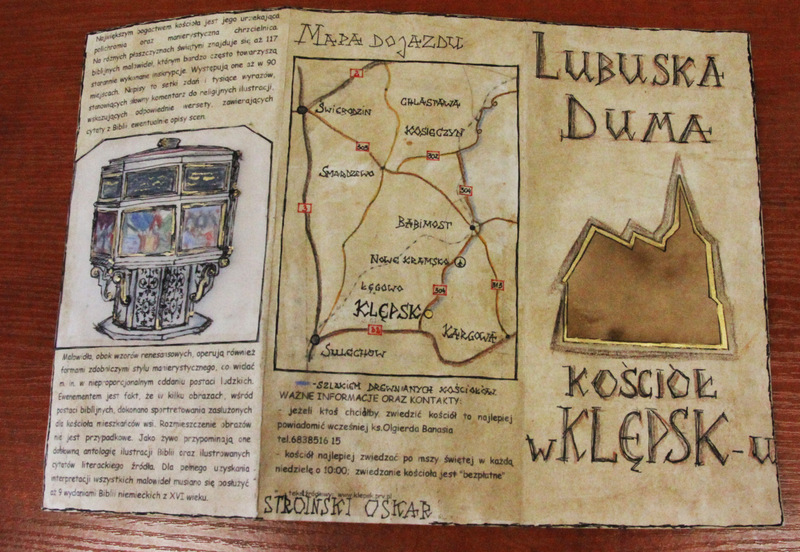 Największym bogactwem kościoła jest jego urzekająca
polichromia oraz manierystyczna chrzcielnica.
Na różnych płaszczyznach świątyni znajduje się aż 117
biblijnych malowideł, którym bardzo często towarzyszą
starannie wykonane inskrypcje. Występują one aż w 90
miejscach. Napisy to setki zdań i tysiące wyrazów,
stanowiących słowny komentarz do religijnych ilustracji,
wskazujących odpowiednie wersety, zawierających
cytaty z Biblii ewentualnie opisy scen.
Malowidła, obok wzorów renesansowych, operują również
formami zdobniczymi stylu manierystycznego, co widać
m. in. w nieproporcjonalnym oddaniu postaci ludzkich.
Ewenementem jest fakt, że w kilku obrazach, wśród
postaci biblijnych, dokonano sportretowania zasłużonych
dla kościoła mieszkańców wsi. Rozmieszczenie obrazów
nie jest przypadkowe. Jako żywo przypominają one
dawną antologię ilustracji Biblii oraz ilustrowanych
cytatów literackiego źródła. Dla pełnego uzyskania
interpretacji wszystkich malowideł musiano się posłużyć
aż 9 wydaniami Biblii niemieckich z XVI wieku.
MAPA DOJAZDU
ŚWIEBODZIN
CHLASTAWA
KOSIECZYN
303
302
SMARDZEWO
304
3
BABIMOST
NOWE KRAMSKO
ŁĘGOWO
304
KLĘPSK
32
KARGOWA
SULECHÓW
-SZLAKIEM DREWNIANYCH KOŚCIOŁÓW
WAŻNE INFORMACJE ORAZ KONTAKTY:
- jeżeli ktoś chciałby, zwiedzić kościół to najlepiej
powiadomić wcześniej ks.Olgierda Banasia
tel.6838516 15
- kościół najlepiej zwiedzać po mszy świętej w każdą
niedzielę o 10:00; zwiedzanie kościoła jest "bezpłatne"
www.klepsk.prv.pl
STROIŃSKI OSKAR
LUBUSKA
DUMA
KOŚCIÓŁ
W KLĘPSK-U